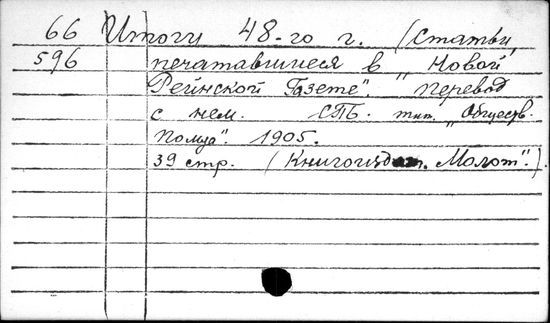 66 Итоги 48-го г. (статьи,
596 печатавшиеся в „Новой
Рейнской Газете". Перевод
с нем. СПБ. тип. „Обществ.
Польза". 1905.
39 стр. (Книгоиздат. „Молот").